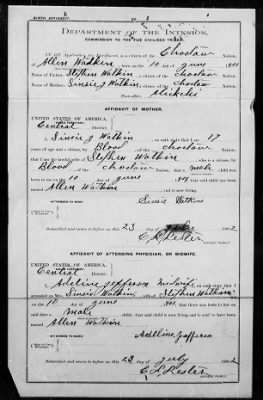 BIRTH AFFIDAVIT.
DEPARTMENT OF THE INTERIOR,
COMMISSION TO THE FIVE CIVILIZED TRIBES.
IN RE Application for Enrollment, as a citizen of the Choctaw Nation,
Allen Watkin, born on the 10 day of June, 1901
Name of Father: Stephen Watkin a citizen of the Choctaw Nation.
Name of Mother: Sinsie J Watkin a citizen of the Choctaw Nation.
AFFIDAVIT OF MOTHER.
UNITED STATES OF AMERICA,
Central District.
I, Sinsie J Watkin, on oath state that I am 17
years of age and a citizen, by Blood of the Choctaw
that I am the lawful wife of Stephen Watkin
Blood of the Choctaw male
born to me on 10 day of June 1901, that said child has been
Allen Watkin and is now living.
Sinsie Watkins
WITNESSES TO MARK:
Subscribed and sworn to before me this 23 day of July 1902
C L Lester
AFFIDAVIT OF ATTENDING PHYSICIAN, OR MIDWIFE.
UNITED STATES OF AMERICA,
Central District.
I, Adeline Jefferson, midwife, on oath state that I
attended on Mrs. Sinsie Watkin, wife of Stephen Watkin
on the 10 day of June, 1901, that there was born to her on said
male child; that said child is now living and is said to have been
named Allen Watkin
Adeline Jefferson
WITNESSES TO MARK:
Subscribed and sworn to before me this 23 day of July 1902
C L Lester